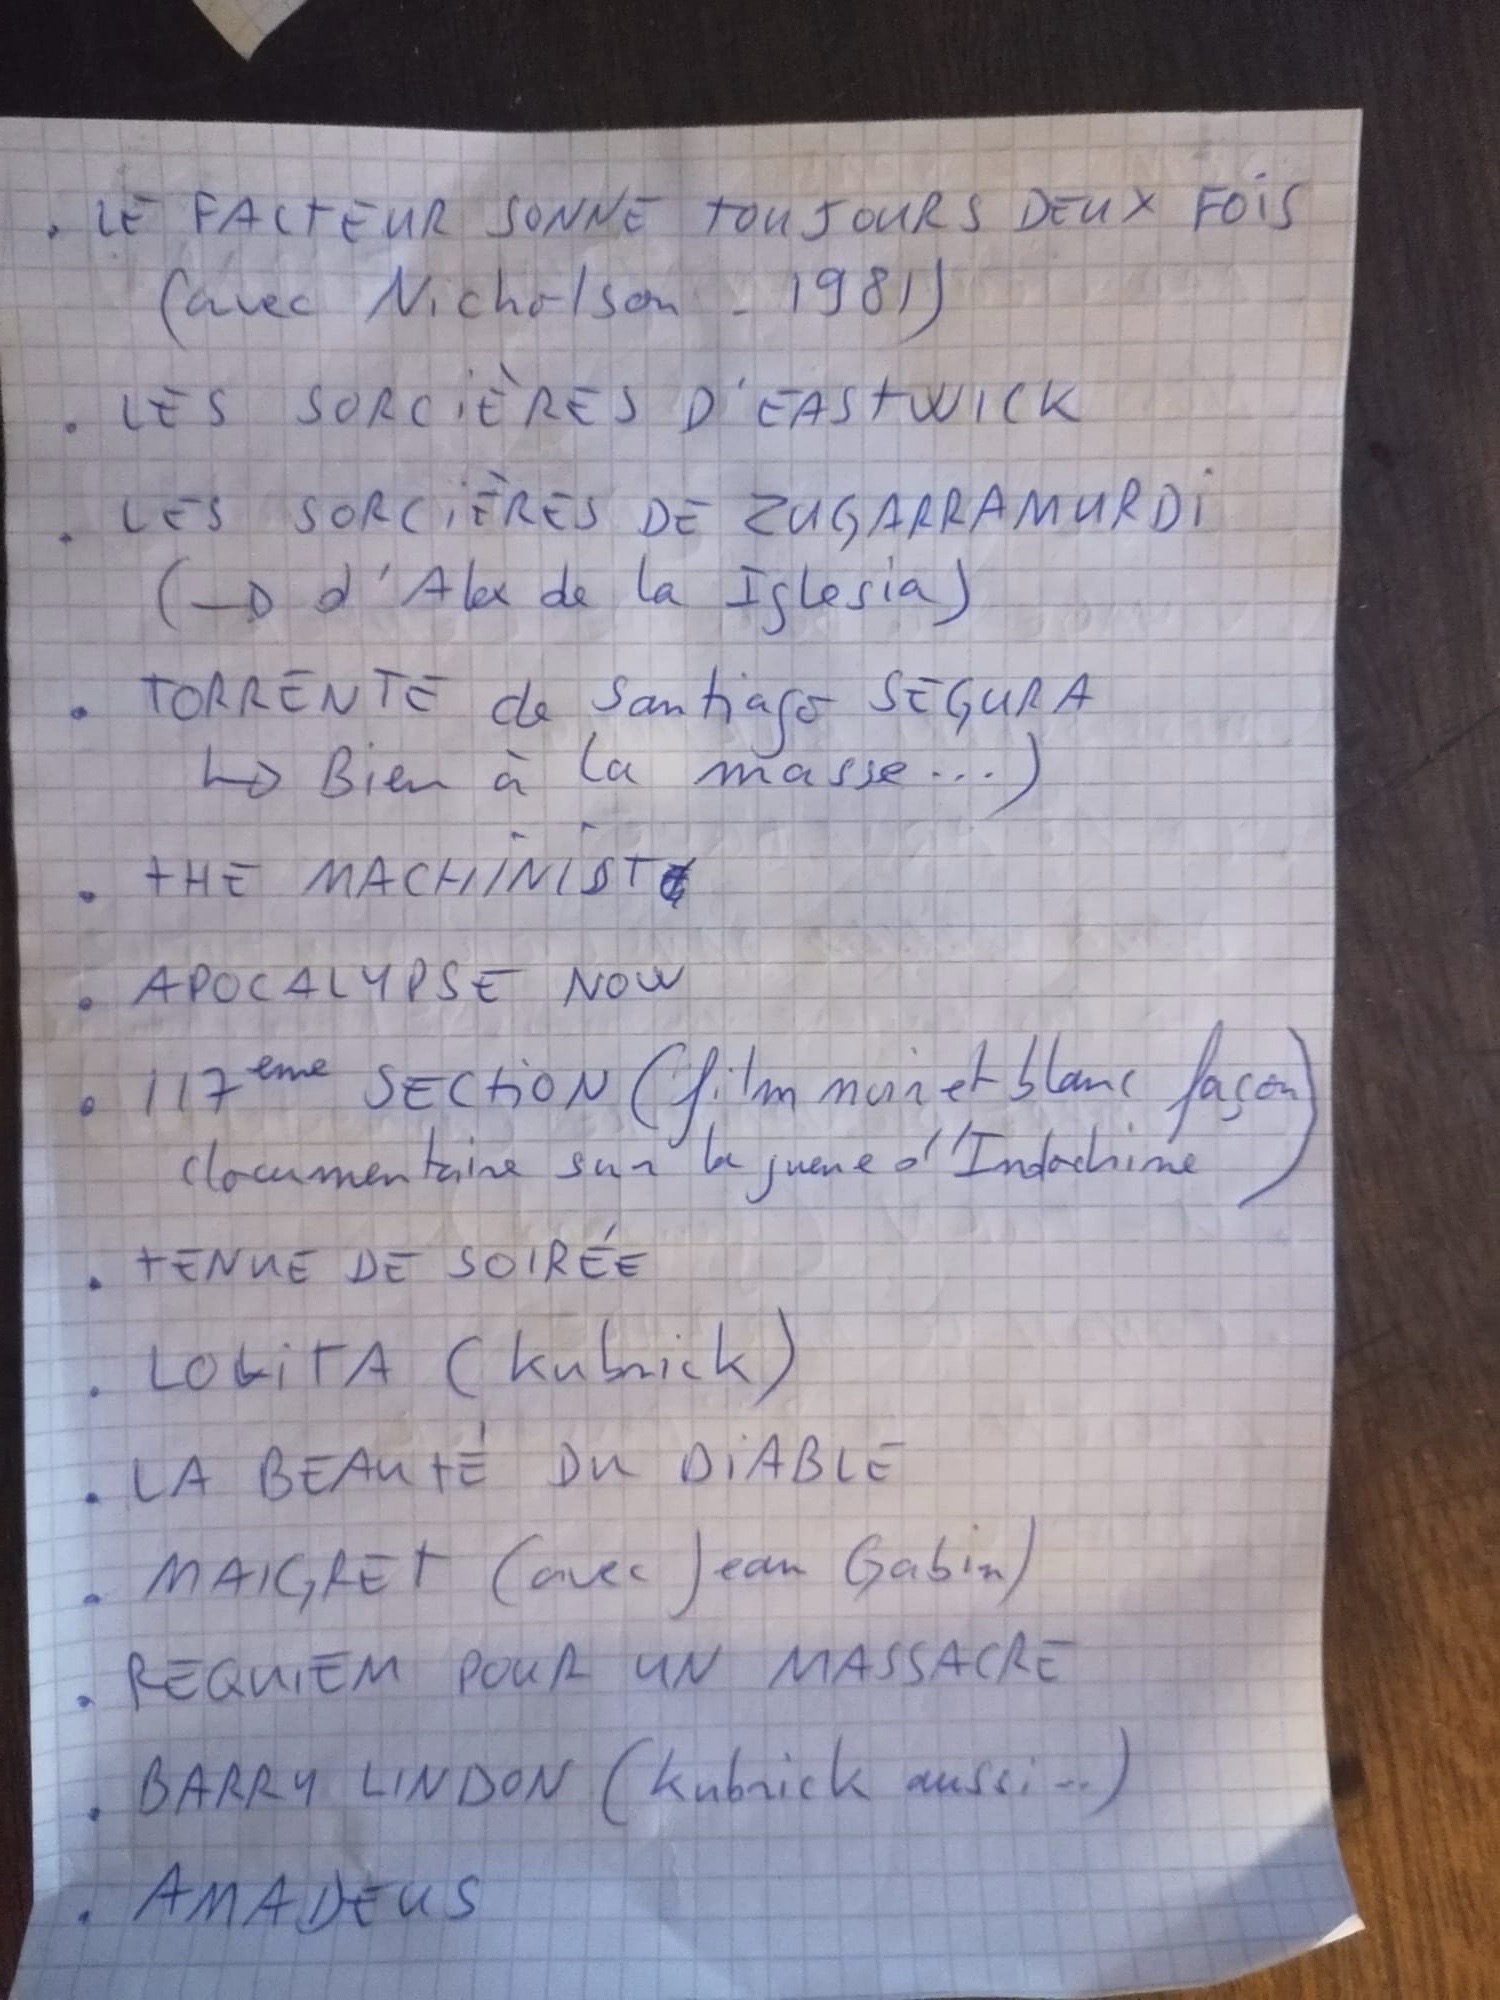 . LE FACTEUR SONNE TOUJOURS DEUX FOIS
(avec Nicholson - 1981)
. LES SORCIÈRES D'EASTWICK
. LES SORCIÈRES DE ZUGARRAMURDI
(→ d'Alex de la Iglesia)
. TORRENTE de Santiago SEGURA
↳ Bien à la masse...)
. THE MACHINIST
. APOCALYPSE NOW
. 117eme SECTION (film noir et blanc façon
documentaire sur la guerre d'Indochine)
. TENUE DE SOIRÉE
. LOLITA (Kubrick)
. LA BEAUTÉ DU DIABLE
. MAIGRET (avec Jean Gabin)
. REQUIEM POUR UN MASSACRE
. BARRY LINDON (Kubrick aussi...)
. AMADEUS